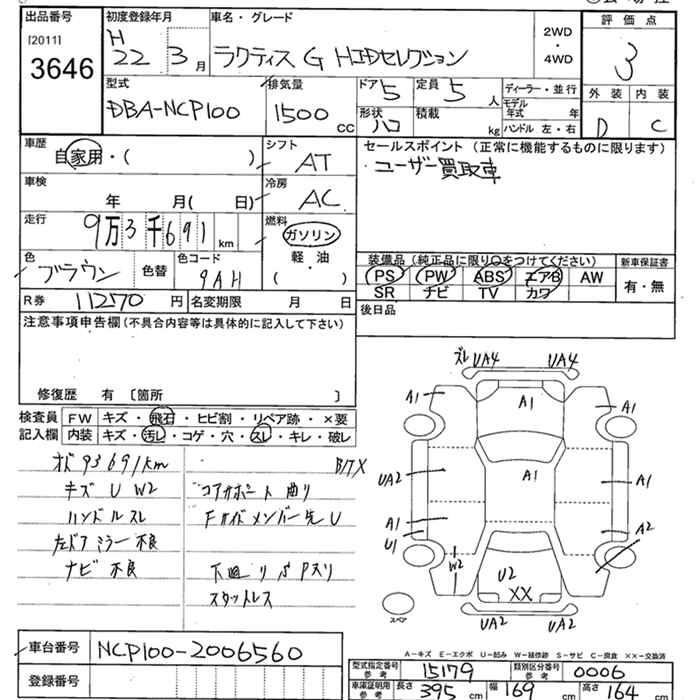 出品番号
[2011]
3646
初度登録年月
H 22 3 月
車名・グレード
ラクティス G HIDセレクション
2WD
・
4WD
評価点
3
外装 内装
D C
型式
DBA-NCP100
排気量
1500 cc
ドア 5
定員 5 人
形状 ハコ
積載 kg
ディーラー・並行
モデル年式 年
ハンドル 左・右
車歴
自家用・( )
シフト
AT
車検
年 月( 日)
冷房
AC
走行
9万3千691 km
燃料
ガソリン
・
軽油
・
( )
色
ブラウン
色替
色コード
9AH
R券 11270 円
名変期限 月 日
セールスポイント (正常に機能するものに限ります)
・ユーザー買取車
装備品 (純正品に限り○をつけてください)
PS PW ABS エアB AW
SR ナビ TV カワ
新車保証書
有・無
後日品
注意事項申告欄 (不具合内容等は具体的に記入して下さい)
修復歴 有 〔箇所 〕
検査員記入欄
FW キズ・飛石・ヒビ割・リペア跡・×要
内装 キズ・汚レ・コゲ・穴・スレ・キレ・破レ
オド 93691km
キズ U W2
ハンドルスレ
左ドアミラー不良
ナビ不良
コアサポート曲り
Fサイドメンバー先U
下廻りサビ
スタットレス
ズレ UA4 UA4
A1 A1 A1
UA2 A1 A1
A1 A2
U1
W2 U2
XX
UA2 UA2
スペア
A-キズ E-エクボ U-凹み W-補修跡 S-サビ C-腐食 ××-交換済
車台番号 NCP100-2006560
登録番号
型式指定番号 参考 15179
類別区分番号 参考 0006
車庫証明用 参考 長さ 395 cm 幅 169 cm 高さ 164 cm